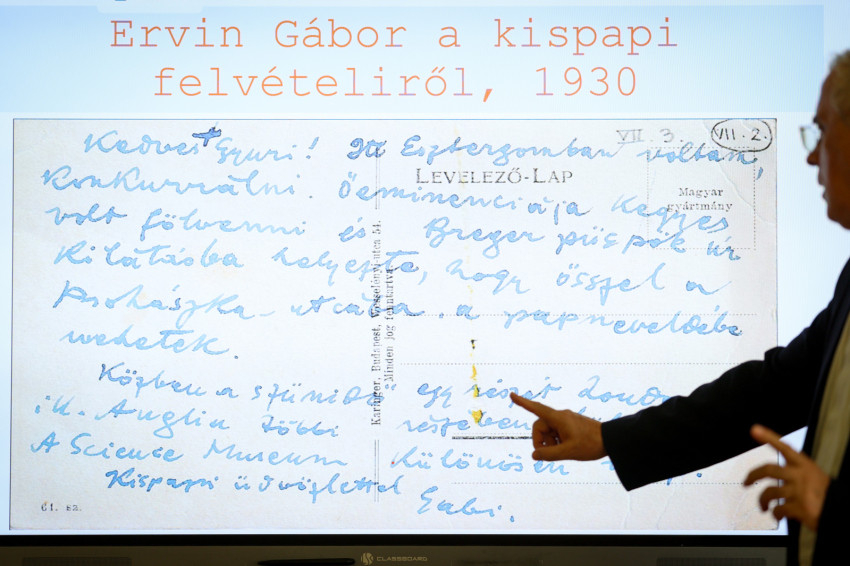 Ervin Gábor a kispapi
felvételiről, 1930
VII. 3. VII. 2.
Kedves Gyuri! Itt Esztergomban voltam,
LEVELEZŐ-LAP
konkurrálni. Őeminenciája kegyes
Magyar
gyártmány
volt fölvenni és Breyer püspök úr
kilátásba helyezte, hogy ősszel a
Prohászka-utcába, a papneveldébe
mehetek.
Közben a szünidő egy részét
Anglia többi részében
A Science Museum különösen
Kispapi üdvözlettel
Gabi.
Karinger, Budapest, Wesselényi-utca 54.
Minden jog fenntartva.
61. sz.
CLASSBOARD